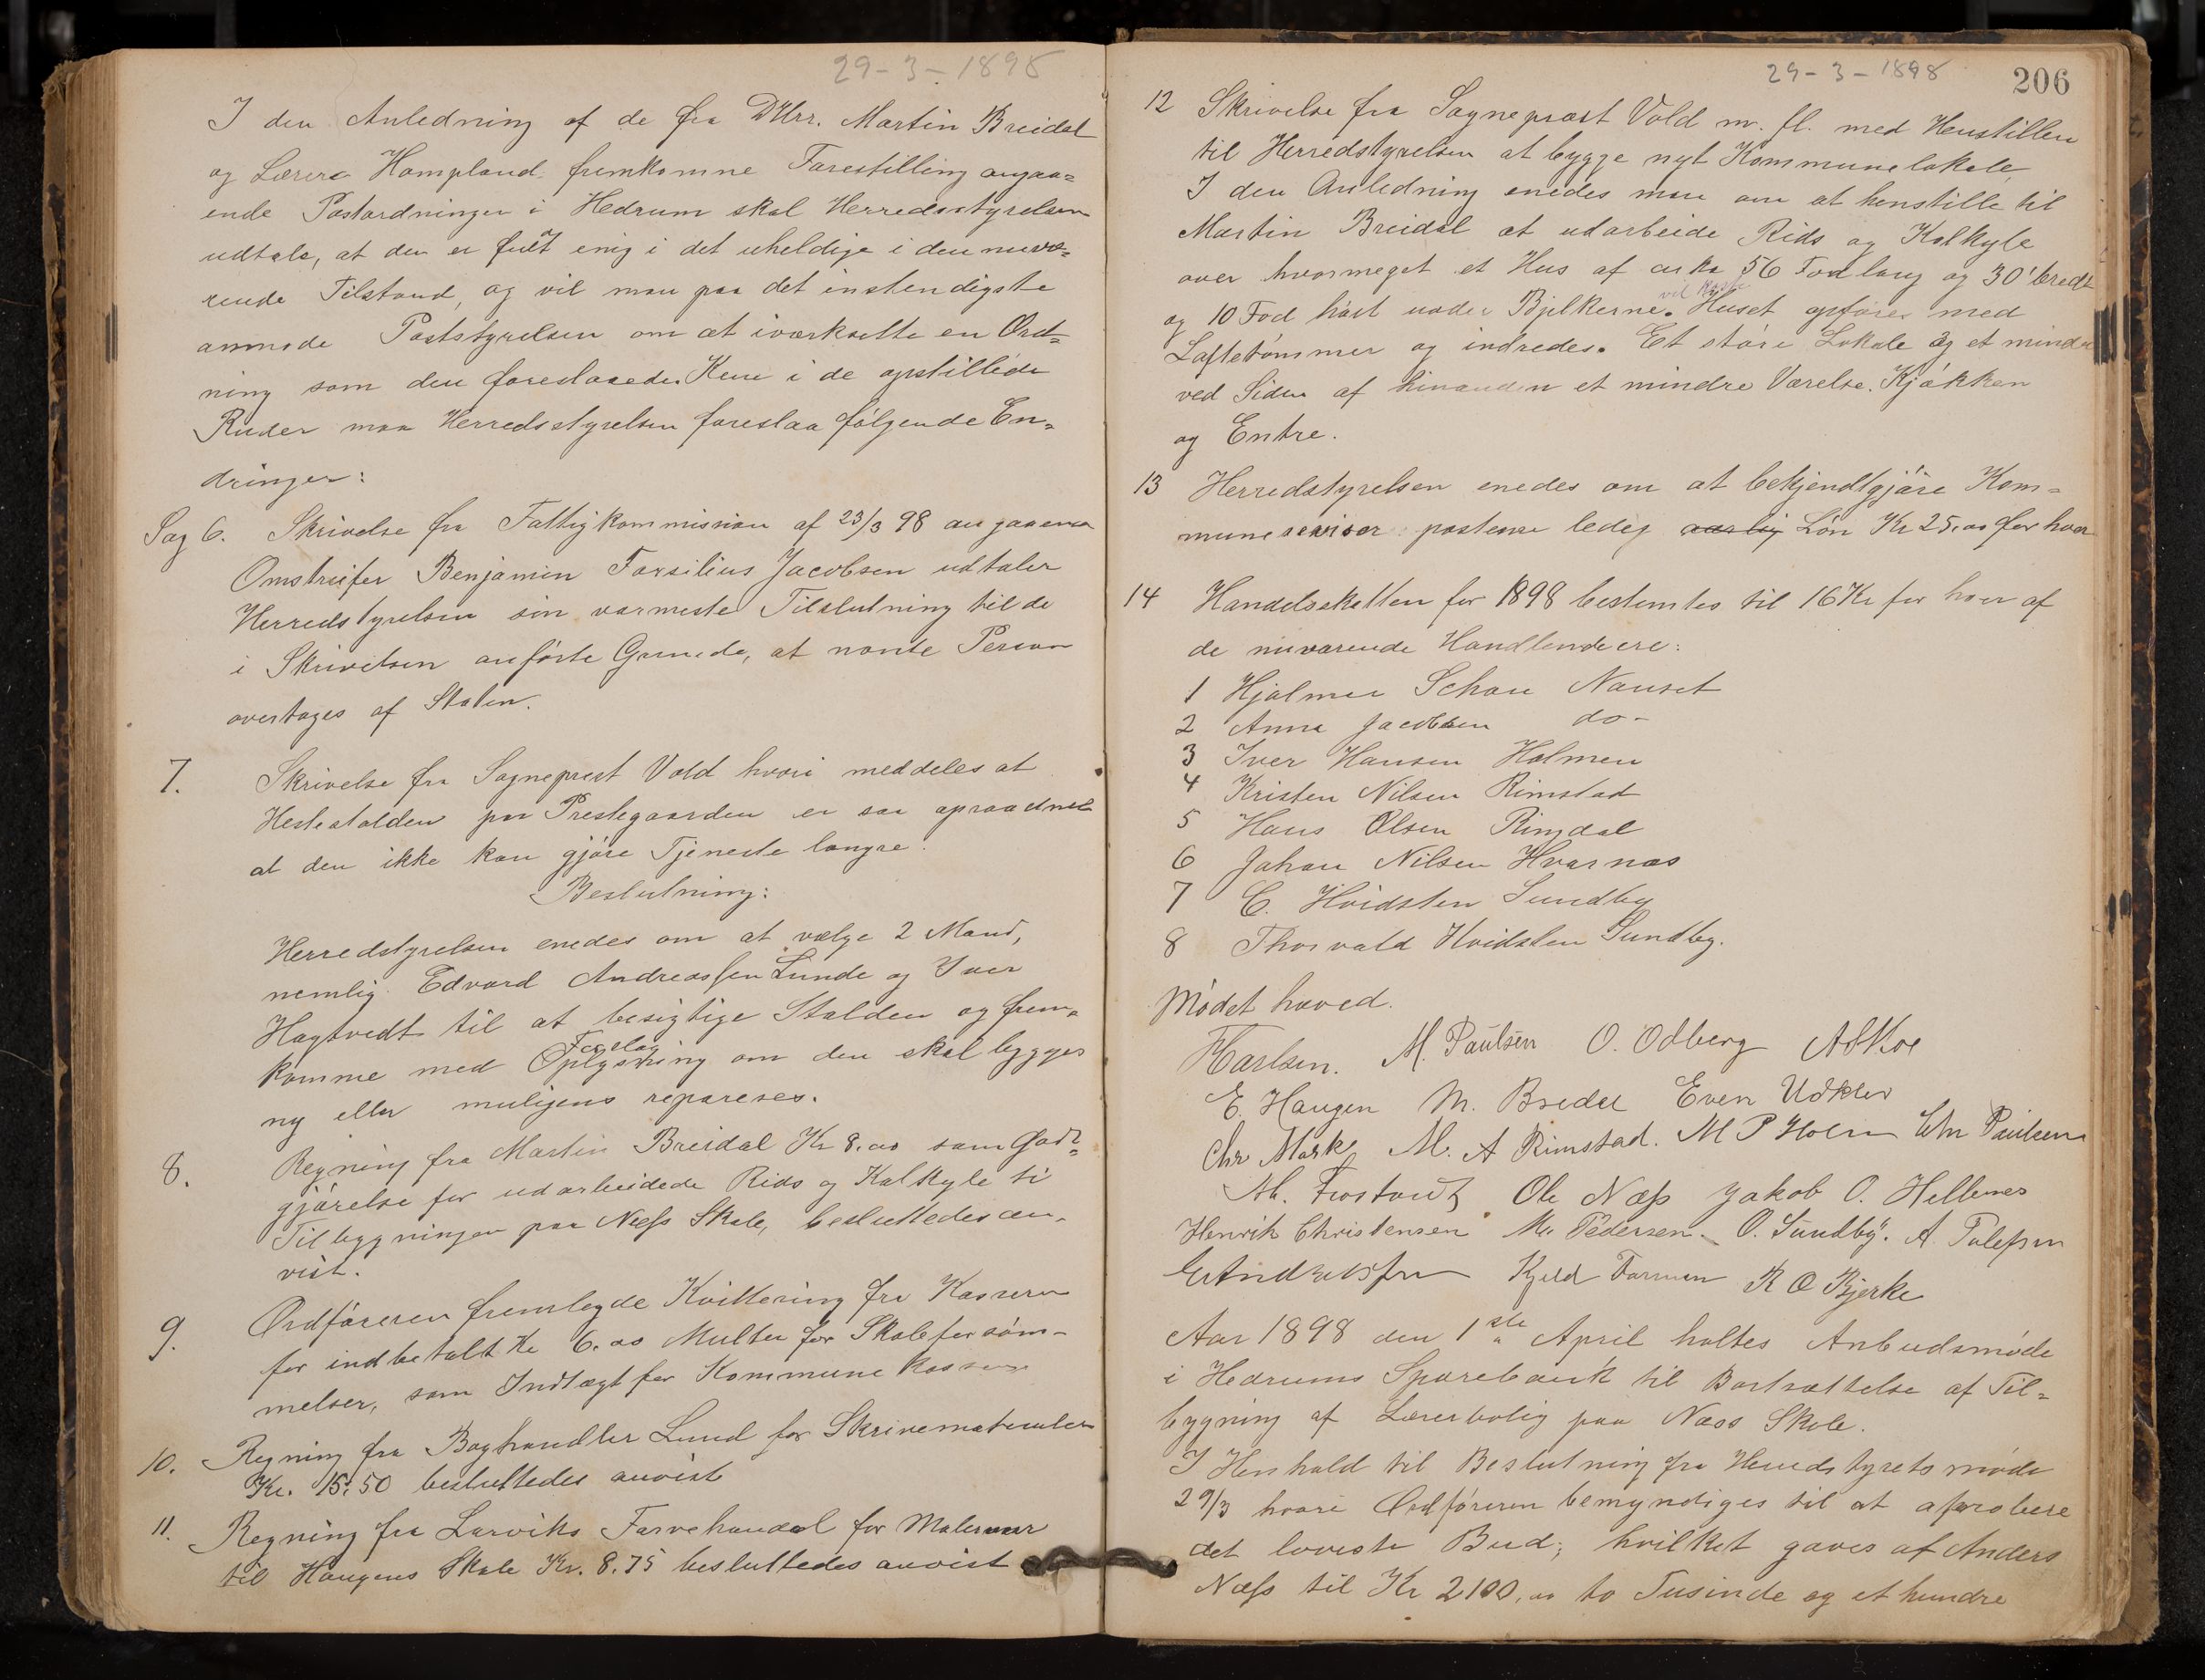 29-3-1898
I den Anledning af de fra DHrr. Martin Breidal
og Lærer Hampland fremkomne Forestilling angaa=
ende Postordningen i Hedrum skal Herredsstyrelsen
udtale, at den er fuldt enig i det uheldige i den nuvæ=
rende Tilstand, og vil man paa det instendigste
anmode Poststyrelsen om at iværksætte en Ord=
ning som den foreslaaede. Kun i de opstillede
Ruder maa Herredsstyrelsen foreslaa følgende En=
dringer:
Sag 6. Skrivelse fra Fattigkommission af 23/3 98 angaaende
Omstreifer Benjamin Farsilius Jacobsen udtaler
Herredstyrelsen sin varmeste Tilslutning til de
i Skrivelsen anførte Grunde, at nævnte Person
overtages af Staten.
7. Skrivelse fra Sogneprest Vold hvori meddeles at
Hestestalden paa Prestegaarden er saa opraadnet
at den ikke kan gjøre Tjeneste længre.
Beslutning:
Herredstyrelsen enedes om at vælge 2 Mand,
nemlig Edvard Andreassen Lunde og Iver
Hagtvedt til at besigtige Stalden og frem=
Forslag
komme med Oplysning om den skal bygges
ny eller muligens repareres.
8. Regning fra Martin Breidal Kr 8.00 som Godt=
gjørelse for udarbeidede Rids og Kalkyle ti
Tilbygningen paa Næss Skole, besluttedes an-
vist.
9. Ordføreren fremlegde Kvittering fra Kasseren
for indbetalt Kr 6.00 Mulkter for Skoleforsøm-
melser, som Indtægt for Kommunekassen
10. Regning fra Boghandler Lund for Skrivematerialer
Kr. 15.50 besluttedes anvist
11. Regning fra Larviks Farvehandel for Malervarer
til Haugens Skole Kr. 8.75 besluttedes anvist
29-3-1898
206
12 Skrivelse fra Sognepræst Vold m. fl. med Henstillen
til Herredstyrelsen at bygge nyt Kommunelokale
I den Anledning enedes man om at henstille til
Martin Breidal at udarbeide Rids og Kalkyle
over hvormeget et Hus af cirka 56 Fod lang og 30' bredt
vil koste
og 10 Fod høit under Bjelkerne. Huset opføres med
Laftetømmer og indredes. Et større Lokale og et mindre
ved Siden af hinanden et mindre Værelse. Kjøkken
og Entre.
13 Herredstyrelsen enedes om at bekjendtgjøre Kom=
munerevisor postene ledig aarlig Løn Kr 25.00 for hver
14 Handelsskatten for 1898 bestemtes til 16 Kr for hver af
de nuværende Handlendeere:
1 Hjalmar Schau Nanset
2 Anna Jacobsen do-
3 Iver Hansen Holmen
4 Kristen Nilsen Rimstad
5 Hans Olsen Ringdal
6 Johan Nilsen Hvarnæs
7 C. Hvidsten Sundby
8 Thorvald Hvidsten Sundby.
Mødet hæved.
FKarlsen. M. Paulsen O. Odberg AOMoe
E. Haugen M. Bredal Even Udklev
Chr Mørk M. A Rimstad. M P Holm Chr Paulsen
Ole Næss Jakob O. Hellenes
Henrik Christensen M. Pedersen. O. Sundby. A. Tolefsen
Kjeld Farmen R O Bjerke
Aar 1898 den 1ste April holtes Anbudsmøde
i Hedrums Sparebank til Bortsættelse af Til=
bygning af Lærerbolig paa Næss Skole.
I Henhold til Beslutning fra Herredstyrets møde
29/3 hvori Ordføreren bemyndiges til at aprobere
det laveste Bud; hvilket gaves af Anders
Næss til Kr 2100.00 to Tusinde og et hundre